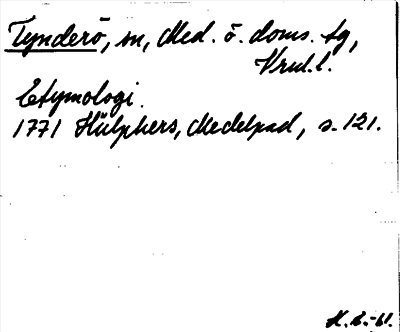 Tynderö, sn, Med. ö. doms. tg,
Vrml.l.
Etymologi.
1771 Hülphers, Medelpad, s. 121.